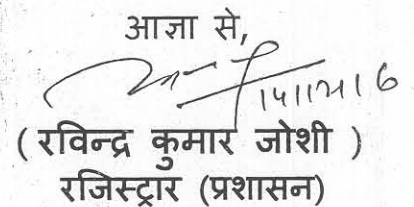 आज्ञा से,
( रविन्द्र कुमार जोशी )
रजिस्ट्रार (प्रशासन)